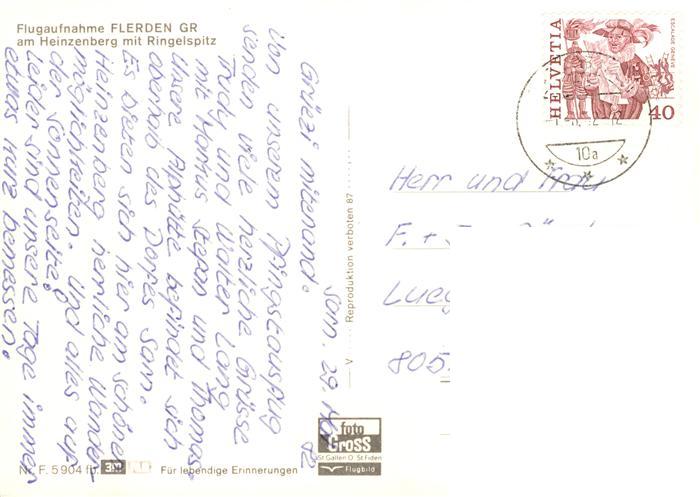 Flugaufnahme FLERDEN GR
am Heinzenberg mit Ringelspitz
Sarn. 29. Mai 82
Grüezi mitenand.
Von unserem Pfingstausflug
senden viele herzliche Grüsse
Trudy und Walter Lang
mit Markus Stefan und Thomas.
Unsere Alphütte befindet sich
oberhalb des Dorfes Sarn.
Es bieten sich hier am schönen
Heinzenberg herrliche Wander-
möglichkeiten. Und alles auf
der Sonnenseite!
Leider sind unsere Tage immer
etwas kurz bemessen.
Nr. F. 5904 fb
Für lebendige Erinnerungen
V Reproduktion verboten 87
foto
GROSS
St Gallen O St Fiden
Flugbild
HELVETIA
ESCALADE GENÈVE
40
10a
Herr und Frau
F. +
Lueg
805